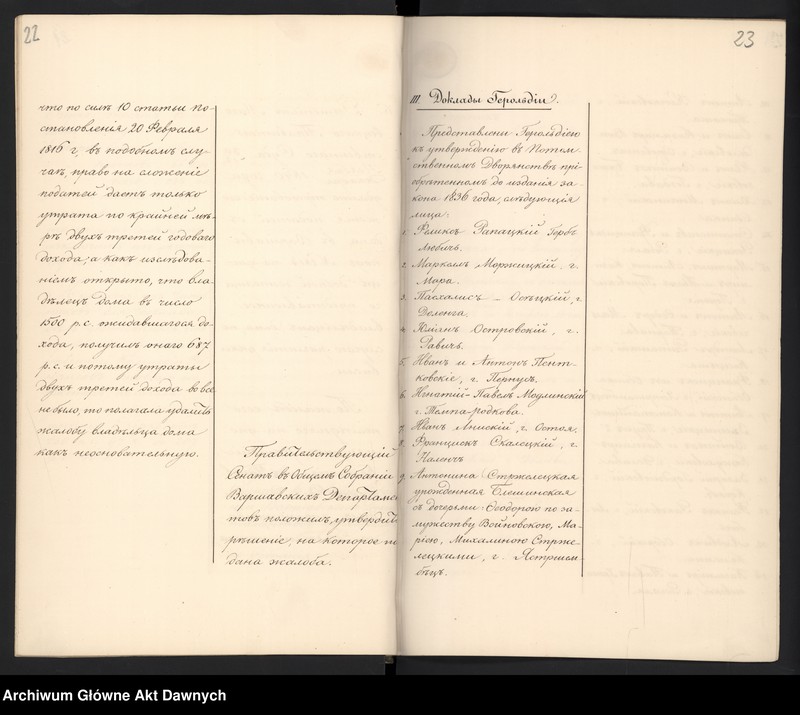 22
что по силѣ 10 статьи По-
становленія 20 Февраля
1816 г, въ подобномъ слу-
чаѣ, право на сложеніе
податей даетъ только
утрата по крайней мѣ-
рѣ двухъ третей годоваго
дохода; а какъ изслѣдова-
ніемъ открыто, что вла-
дѣлецъ дома въ число
1500 р.с. ожидавшагося до-
хода, получилъ онаго 687
р.с. и потому утраты
двухъ третей дохода вовсе
не было, то полагала удалить
жалобу владѣльца дома
какъ неосновательную.
Правительствующій
Сенатъ въ Общемъ Собраніи
Варшавскихъ Департамен
товъ положилъ, утвердить
рѣшеніе, на которое по
дана жалоба.
23
III. Доклады Герольдіи.
Представлены Герольдіею
къ утвержденію въ Потом
ственномъ Дворянствѣ прі-
обрѣтенномъ до изданія за-
кона 1836 года, слѣдующія
лица:
1. Феликсъ Рапацкій Гербъ
Любичъ.
2. Маркелъ Моржицкій, г.
Мора.
3. Пасхалисъ - Осѣцкій, г.
Доленга.
4. Юліанъ Островскій, г.
Равичъ.
5. Иванъ и Антонъ Пент-
ковскіе, г.
6. Игнатій-Павелъ Модлинскій
г. Темпа-подкова.
7. Иванъ Анискій, г. Остоя.
8. Францискъ Скалецкій, г.
Наленчъ
9. Антонина Стржелецкая
урожденная Блешинская
съ дочерьми: Ѳеодорою по за-
мужеству Войновскою, Ма-
ріею, Михалиною Стрже-
лецкими, г. Ястржем-
бѣцъ.
Archiwum Główne Akt Dawnych